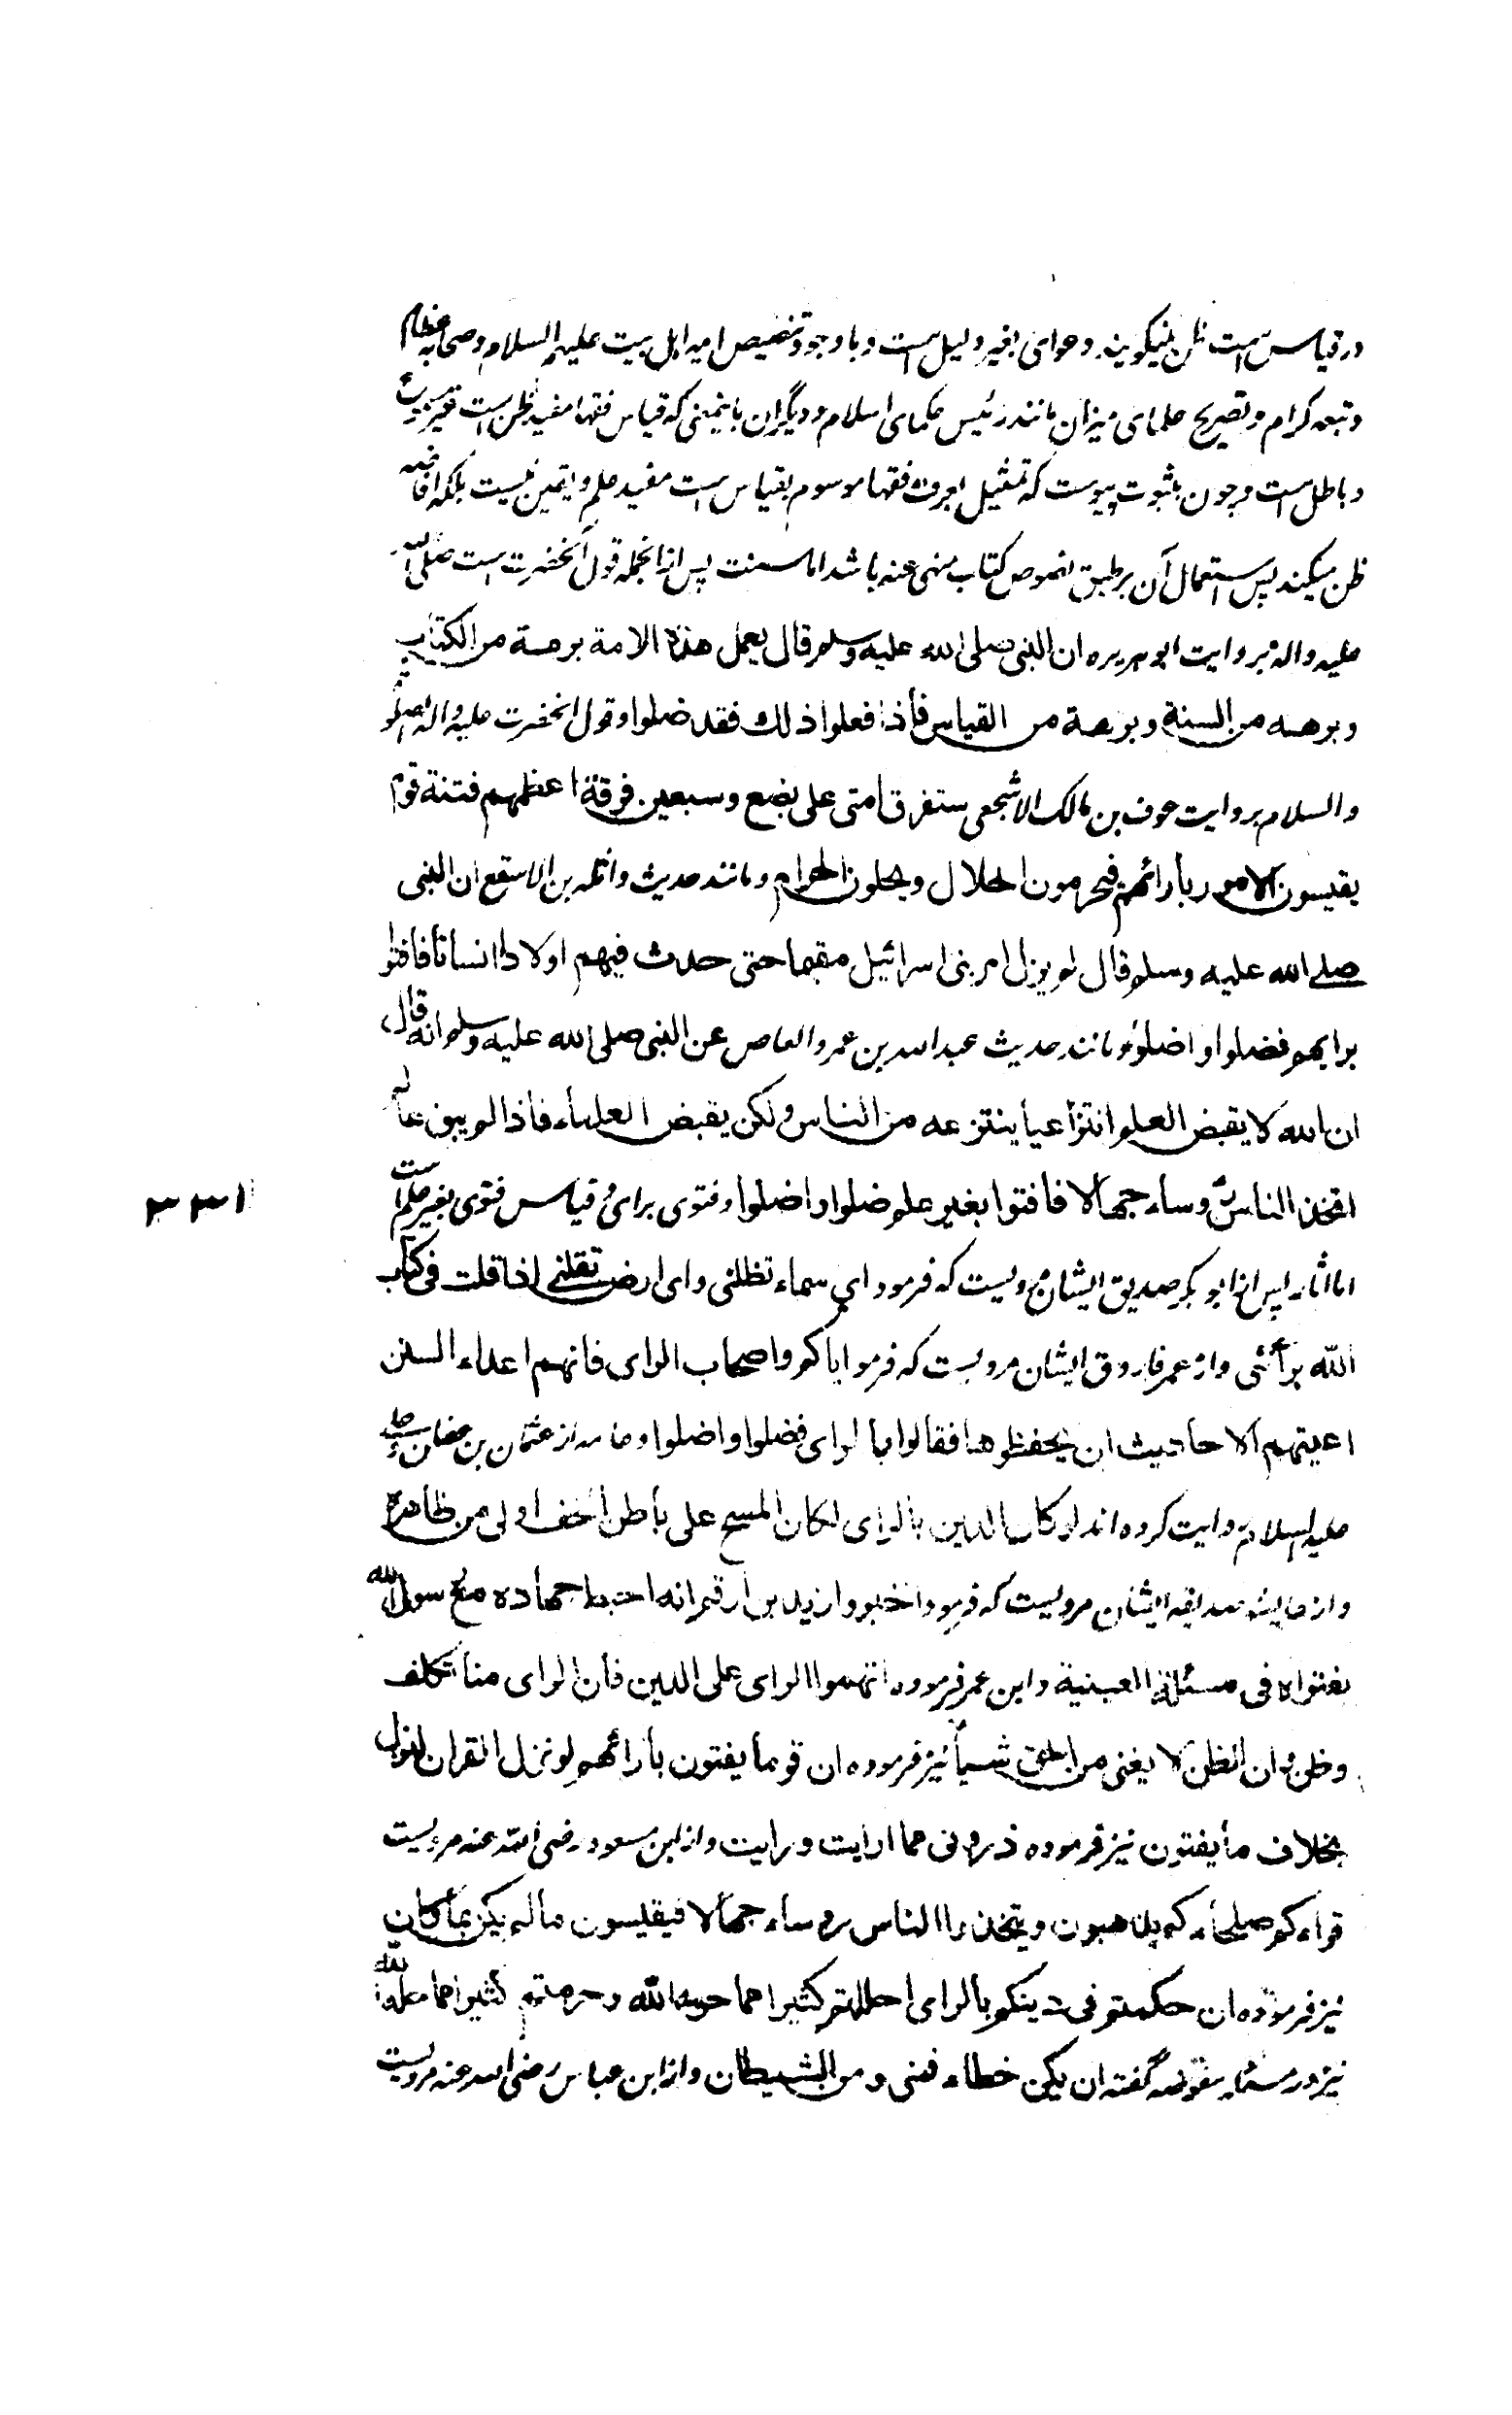 در قیاس است ظن نمیگویند دعوای بغیر دلیل است و با وجود تنصیص ایمه اهل بیت علیهم السلام و صحابه عظام
و تبعه کرام و تصریح علمای میزان مانند رئیس حکمای اسلام و دیگران باینمعنی که قیاس فقها مفید ظن است غیر
و باطل است و چون بثبوت پیوست که تمثیل بعرف فقها موسوم بقیاس است مفید علم و یقین نیست بلکه افاضه
ظن میکند پس استعمال آن بر طبق نصوص کتاب منهی عنه باشد اما سنت پس ازانجمله قول آنحضرت است صلی الله
علیه واله بروایت ابو هریره ان النبی صلی الله علیه وسلم قال یعمل هذه الامة برهة من الکتاب
وبرهه من السنة وبرهة من القیاس فاذا فعلوا ذلك فقد ضلوا و قول آنحضرت علیه واله الصلوة
والسلام بروایت عوف بن مالک الاشجعی ستفرق امتی علی بضع وسبعین فرقة اعظمهم فتنة قوم
یقیسون الامور بآرائهم فیحرمون الحلال ویحلون الحرام و مانند حدیث واثله بن الاسقع ان النبی
صلی الله علیه وسلم قال لم یزل امر بنی اسرائیل مقیما حتی حدث فیهم اولادا انسانا فافتوا
برایهم فضلوا و اضلوا و مانند حدیث عبدالله بن عمرو العاص عن النبی صلی الله علیه وسلم انه قال
ان الله لا یقبض العلم انتزاعیا ینتزعه من الناس ولکن یقبض العلماء فاذا لم یبق عالم
اتخذ الناس رؤساء جهالا فافتوا بغیر علم ضلوا واضلوا و فتوی برای و قیاس فتوی بغیر علم است
اما اثار پس از ابو بکر صدیق ایشان مرویست که فرمود ای سماء تظلنی وای ارض تقلنی اذا قلت فی کتاب
الله برأئی واز عمر فاروق ایشان مرویست که فرمود ایاکم واصحاب الرای فانهم اعداء السنن
اعیتهم الاحادیث ان یحفظوها فقالوا بالرای فضلوا واضلوا و عامه از عثمان بن عفان و علی
علیه السلام روایت کرده اند لو کان الدین بالرای لکان المسح علی باطن الخف اولی من ظاهره
واز عایشه صدیقه ایشان مرویست که فرمود اخبروا زید بن ارقم انه احبط جهاده مع رسول الله
بفتواه فی مسئلة العینیة و ابن عمر فرموده اتهموا الرای علی الدین فان الرای منا تکلف
وظن وان الظن لا یغنی من الحق شیأ نیز فرموده ان قوما یفتون بآرائهم لو نزل القران لنزل
بخلاف ما یفتون نیز فرموده ذرونی مما ارایت ورایت واز ابن مسعود رضی الله عنه مرویست
قراءکم صلحاءکم یذهبون ویتخذوا الناس رؤساء جهالا فیقیسون ما لم یکن بما کان
نیز فرموده ان حکمتم فی دینکم بالرای احللتم کثیرا مما حرمه الله وحرمتم کثیرا مما حلله الله
نیز در مسئله مفوضه گفته ان یکن خطاء فمنی ومن الشیطان واز ابن عباس رضی الله عنه مرویست
۳۳۱